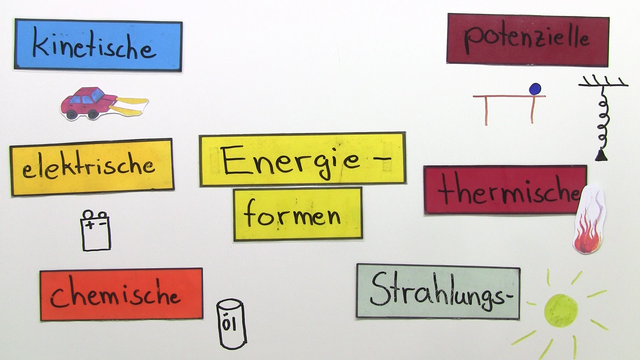 kinetische
potenzielle
elektrische
Energie-
formen
thermische
+ -
chemische
Öl
Strahlungs-